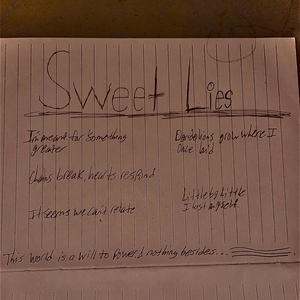 Sweet Lies
I'm meant for something
greater
Chains break, hearts respond
It seems we can't relate
Dandelions grow where I
once laid
Little by little
I lost myself
This world is a will to Power! nothing besides...